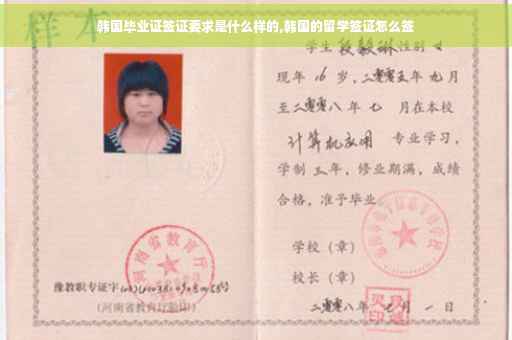 韩国毕业证签证要求是什么样的,韩国的留学签证怎么签
样本
学生 段毅琳 性别 女
现年 16 岁，二零零五年 九月
至二零零八年 七 月在本校
计算机应用 专业学习，
学制 三 年，修业期满，成绩
合格，准予毕业。
学校（章）
校长（章）
二零零八年 七 月 一 日
河南省教育厅
豫教职专证字
（河南省教育厅验印）